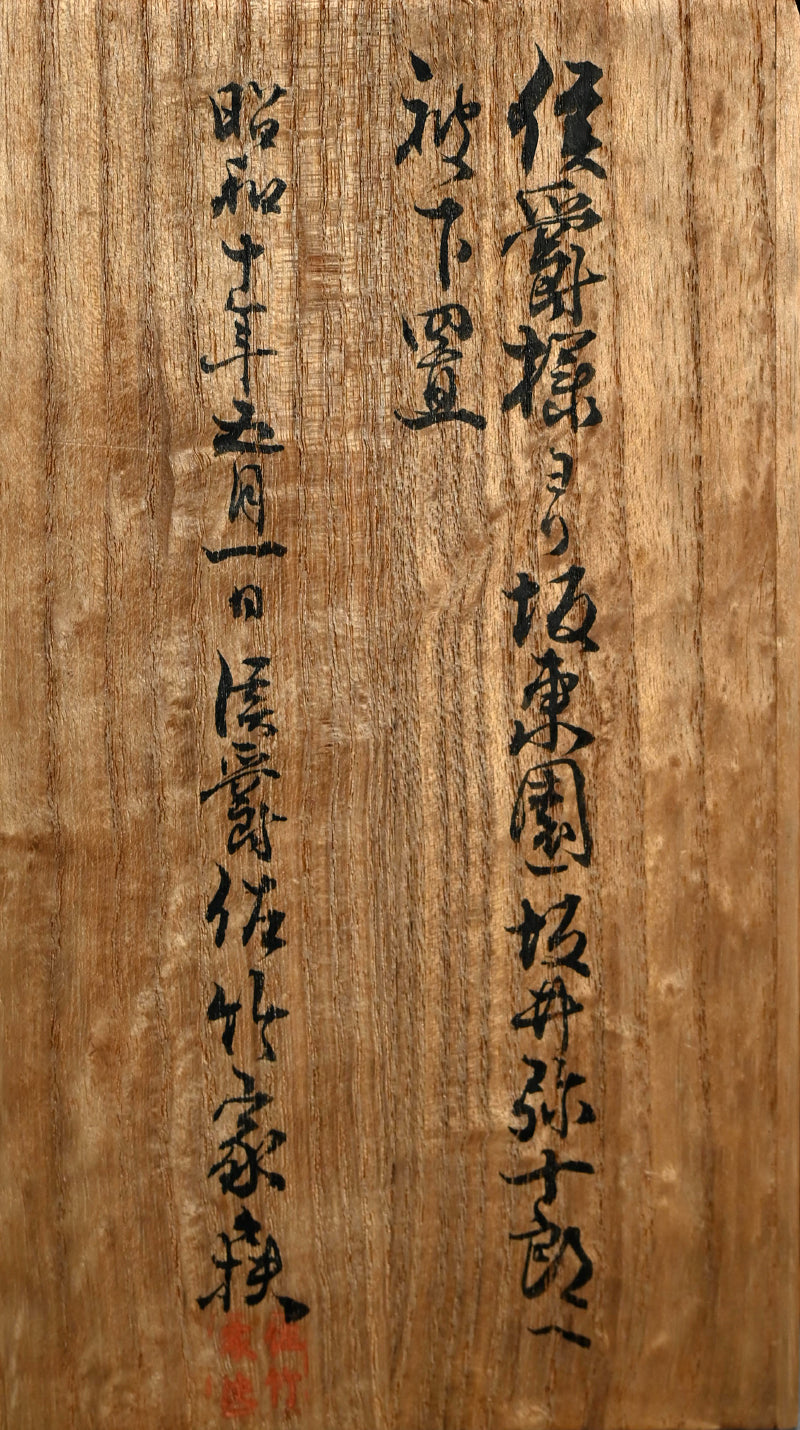 侯爵様ヨリ坂東園坂井弥十郎へ
被下置
昭和十年五月一日 侯爵佐竹家扶